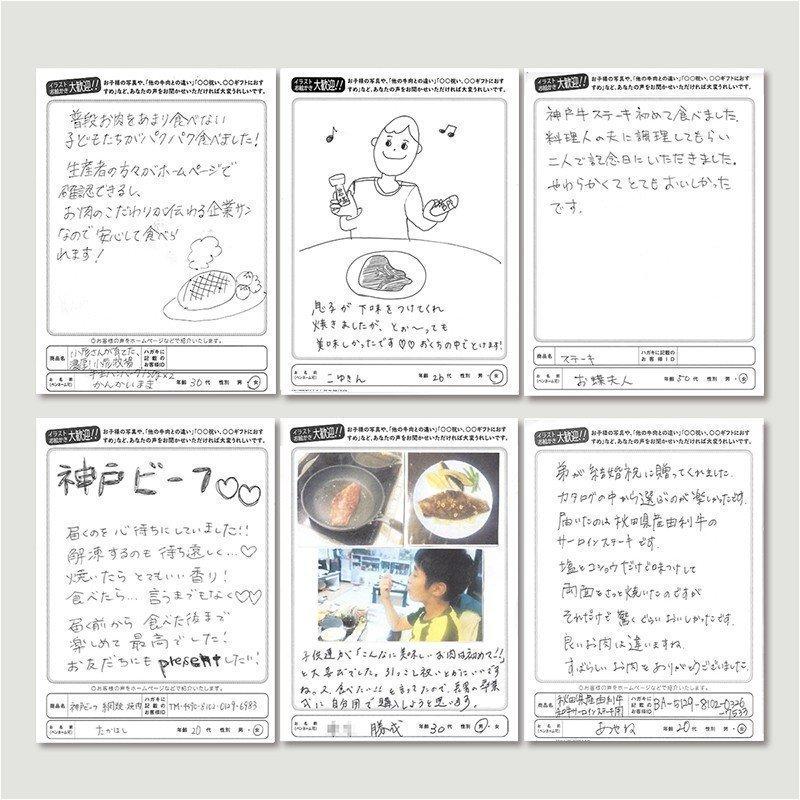 イラスト お絵かき 大歓迎!!
お子様の写真や、「他の牛肉との違い」「〇〇祝い、〇〇ギフトにおす
すめ」など、あなたの声をお聞かせいただければ大変うれしいです。
普段お肉をあまり食べない
子どもたちがパクパク食べました!
生産者の方々がホームページで
確認できるし、
お肉のこだわりが伝わる企業サン
なので安心して食べら
れます!
◎お客様の声をホームページなどで紹介いたします。
商品名
小形さんが育てた、
ハガキに
記載の
お客様ID
お名前
(ペンネーム可)
かんかいまき
年齢 30代 性別 男・女
イラスト お絵かき 大歓迎!!
お子様の写真や、「他の牛肉との違い」「〇〇祝い、〇〇ギフトにおす
すめ」など、あなたの声をお聞かせいただければ大変うれしいです。
息子が下味をつけてくれ
焼きましたが、とぉ〜っても
美味しかったです♡♡ おくちの中でとけます!
お名前
(ペンネーム可)
こゆきん
年齢 26代 性別 男・女
イラスト お絵かき 大歓迎!!
お子様の写真や、「他の牛肉との違い」「〇〇祝い、〇〇ギフトにおす
すめ」など、あなたの声をお聞かせいただければ大変うれしいです。
神戸牛ステーキ初めて食べました。
料理人の夫に調理してもらい
二人で記念日にいただきました。
やわらかくてとてもおいしかった
です。
◎お客様の声をホームページなどで紹介いたします。
商品名
ステーキ
ハガキに
記載の
お客様ID
お名前
(ペンネーム可)
お蝶夫人
年齢 50代 性別 男・女
イラスト お絵かき 大歓迎!!
お子様の写真や、「他の牛肉との違い」「〇〇祝い、〇〇ギフトにおす
すめ」など、あなたの声をお聞かせいただければ大変うれしいです。
神戸ビーフ♡♡
届くのを心待ちにしていました!!
解凍するのも待ち遠しく…♡
焼いたらとてもいい香り!
食べたら…言うまでもなく♡♡
届く前から食べた後まで
楽しめて最高でした!
お友だちにもpresentしたい!
◎お客様の声をホームページなどで紹介いたします。
商品名
神戸ビーフ 網焼 焼肉
ハガキに
記載の
お客様ID
TM-4590-8102-0129-6983
お名前
(ペンネーム可)
たかはし
年齢 20代 性別 男・女
イラスト お絵かき 大歓迎!!
お子様の写真や、「他の牛肉との違い」「〇〇祝い、〇〇ギフトにおす
すめ」など、あなたの声をお聞かせいただければ大変うれしいです。
子供達が「こんなに美味しいお肉は初めて!!」
と大喜びでした。引っこし祝いとかにいいです
ね。又、食べたい!!と言ってたので、長男の卒業
式に自分用で購入しようと思います。
お名前
(ペンネーム可)
勝成
年齢 30代 性別 男・女
イラスト お絵かき 大歓迎!!
お子様の写真や、「他の牛肉との違い」「〇〇祝い、〇〇ギフトにおす
すめ」など、あなたの声をお聞かせいただければ大変うれしいです。
弟が結婚祝に贈ってくれました。
カタログの中から選ぶのが楽しかったです。
届いたのは秋田県産由利牛の
サーロインステーキです。
塩とコショウだけで味つけして
両面をさっと焼いたのですが
それだけで驚くぐらいおいしかったです。
良いお肉は違いますね。
すばらしいお肉をありがとうございました。
◎お客様の声をホームページなどで紹介いたします。
商品名
秋田県産由利牛
ハガキに
記載の
お客様ID
BA-5129-8102-0326
-7533
お名前
(ペンネーム可)
あやね
年齢 20代 性別 男・女